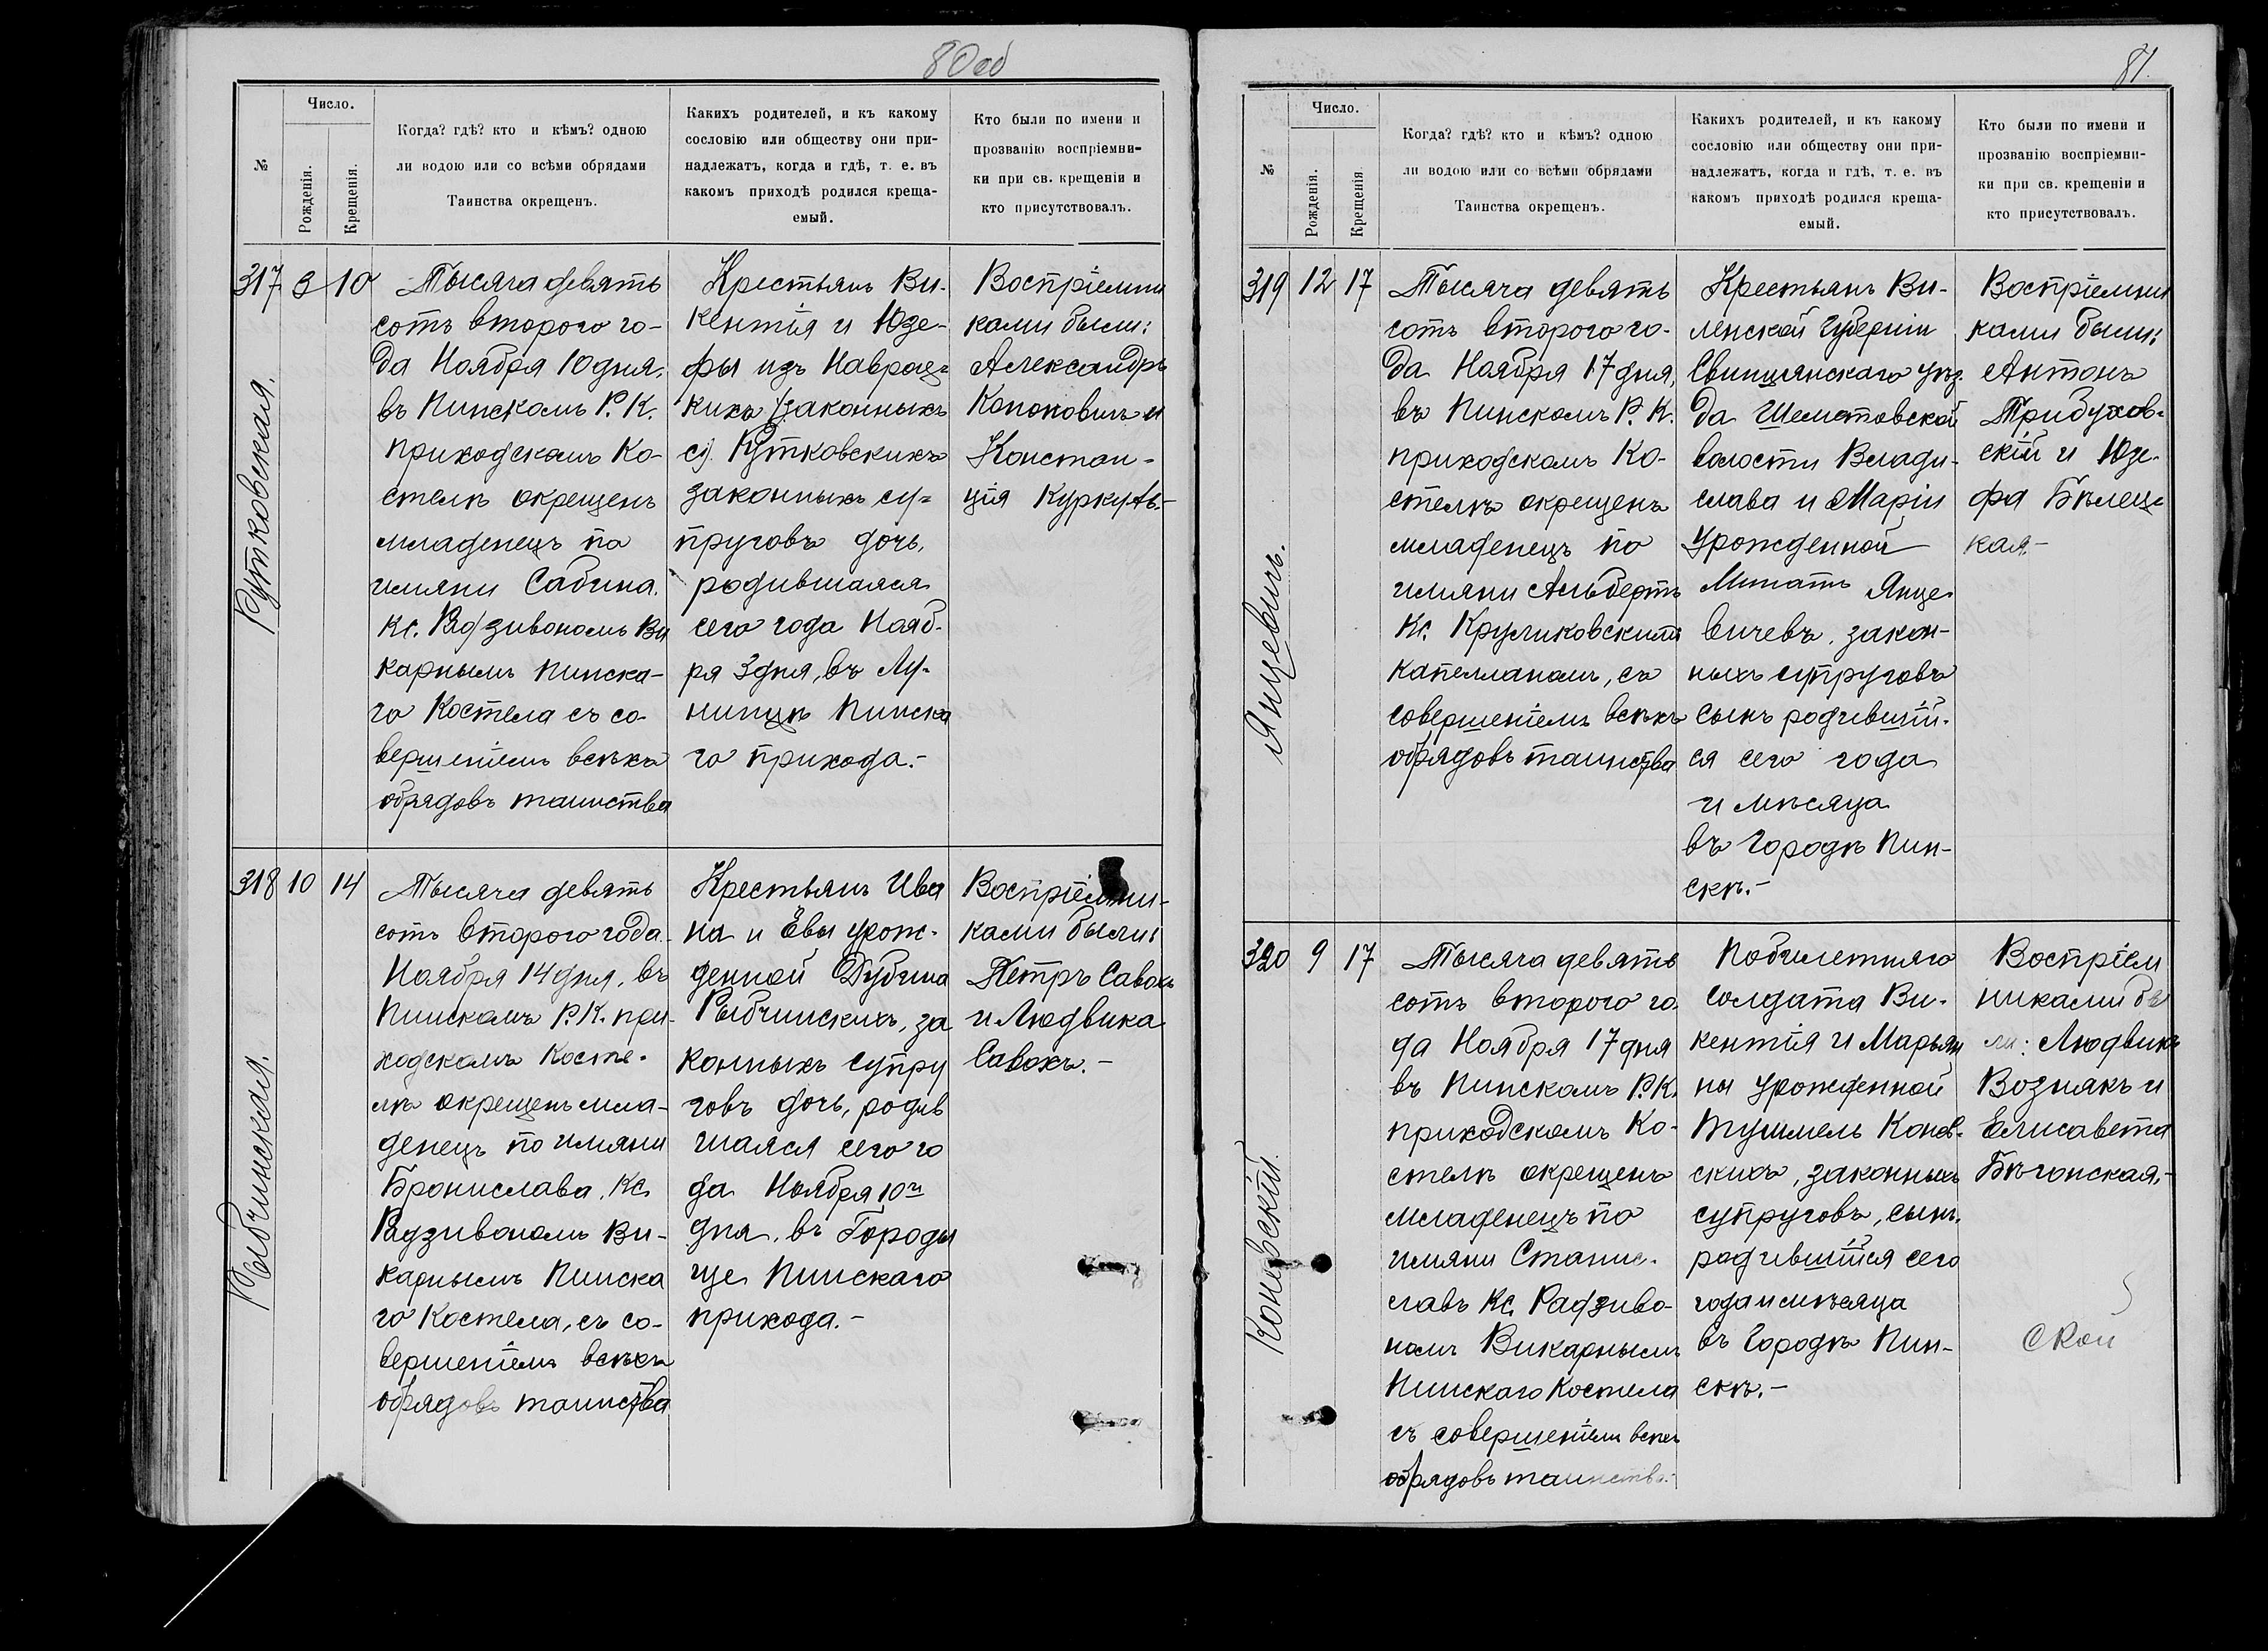 80 об
Число.
№
Рожденія.
Крещенія.
Когда? гдѣ? кто и кѣмъ? одною
ли водою или со всѣми обрядами
Таинства окрещенъ.
Какихъ родителей, и къ какому
сословію или обществу они при-
надлежатъ, когда и гдѣ, т. е. въ
какомъ приходѣ родился креща-
емый.
Кто были по имени и
прозванію воспріемни-
ки при св. крещеніи и
кто присутствовалъ.
317 3 10
Рутковская.
Тысяча девять
сотъ второго го-
да Ноября 10 дня,
въ Пинскомъ Р. К.
приходскомъ Ко-
стелѣ окрещенъ
младенецъ по
имяни Сабина.
Кс. Радзивономъ Ви
карнымъ Пинска-
го Костела съ со-
вершеніемъ всѣхъ
обрядовъ таинства
Крестьянъ Ви-
кентія и Юзе-
фы изъ Наврац-
кихъ (законныхъ
с) Рутковскихъ
законныхъ су-
пруговъ дочь,
родившаяся
сего года Нояб-
ря 3 дня, въ Лу-
нинцѣ Пинска
го прихода.-
Воспріемни
ками были:
Александръ
Кононовичъ и
Констан-
ція Куркуть.-
318 10 14
Рыбчинская.
Тысяча девять
сотъ второго года
Ноября 14 дня, въ
Пинскомъ Р.К. при-
ходскомъ Косте-
лѣ окрещенъ мла-
денецъ по имяни
Бронислава, Кс.
Радзивономъ Ви-
карнымъ Пинска
го Костела, съ со-
вершеніемъ всѣхъ
обрядовъ таинства
Крестьянъ Ива
на и Евы урож-
денной Дубина
Рыбчинскихъ, за
конныхъ супру
говъ дочь, родив
шаяся сего го
да Ноября 10го
дня, въ Городи
ще Пинскаго
прихода.-
Воспріемни-
ками были:
Петръ Савокъ
и Людвика
Савокъ.-
81.
Число.
№
Рожденія.
Крещенія.
Когда? гдѣ? кто и кѣмъ? одною
ли водою или со всѣми обрядами
Таинства окрещенъ.
Какихъ родителей, и къ какому
сословію или обществу они при-
надлежатъ, когда и гдѣ, т. е. въ
какомъ приходѣ родился креща-
емый.
Кто были по имени и
прозванію воспріемни-
ки при св. крещеніи и
кто присутствовалъ.
319 12 17
Янцевичъ.
Тысяча девять
сотъ второго го-
да Ноября 17 дня,
въ Пинскомъ Р. К.
приходскомъ Ко-
стелѣ окрещенъ
младенецъ по
имяни Альбертъ
Кс. Круликовскимъ
капелланомъ, съ
совершеніемъ всѣхъ
обрядовъ таинства
Крестьянъ Ви-
ленской Губерніи
Свинцянскаго уѣз-
да Шеметовской
волости Влади-
слава и Маріи
урожденной
Минать Янце-
вичевъ, закон-
ныхъ супруговъ
сынъ родившій-
ся сего года
и мѣсяца
въ Городѣ Пин-
скѣ.-
Воспріемни
ками были:
Антонъ
Трибухов-
скій и Юзе-
фа Бѣлец-
кая.-
320 9 17
Коневскій.
Тысяча девять
сотъ второго го-
да Ноября 17 дня
въ Пинскомъ Р.К.
приходскомъ Ко-
стелѣ окрещенъ
младенецъ по
имяни Станис-
лавъ Кс. Радзиво-
номъ Викарнымъ
Пинскаго Костела
съ совершеніемъ всѣхъ
обрядовъ таинства.-
Побилетняго
солдата Ви-
кентія и Марьян
ны урожденной
Тушмель Конев-
скихъ, законныхъ
супруговъ, сынъ,
родившійся сего
года и мѣсяца
въ Городѣ Пин-
скѣ.-
Воспріем
никами бы
ли: Людвикъ
Вознякъ и
Елисавета
Бѣгонская.-
ской